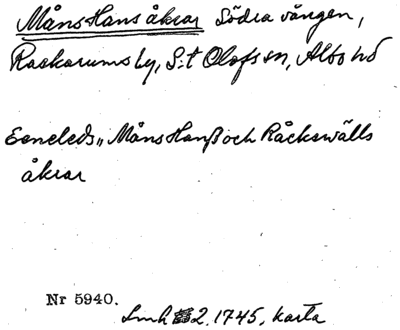 Måns Hans åkrar Södra vången,
Raskarums by, S:t Olofs sn, Albo hd
Eeneleds,, Måns Hanß och Råckswälls
åkrar
Nr 5940.
Lmh 2, 1745, karta